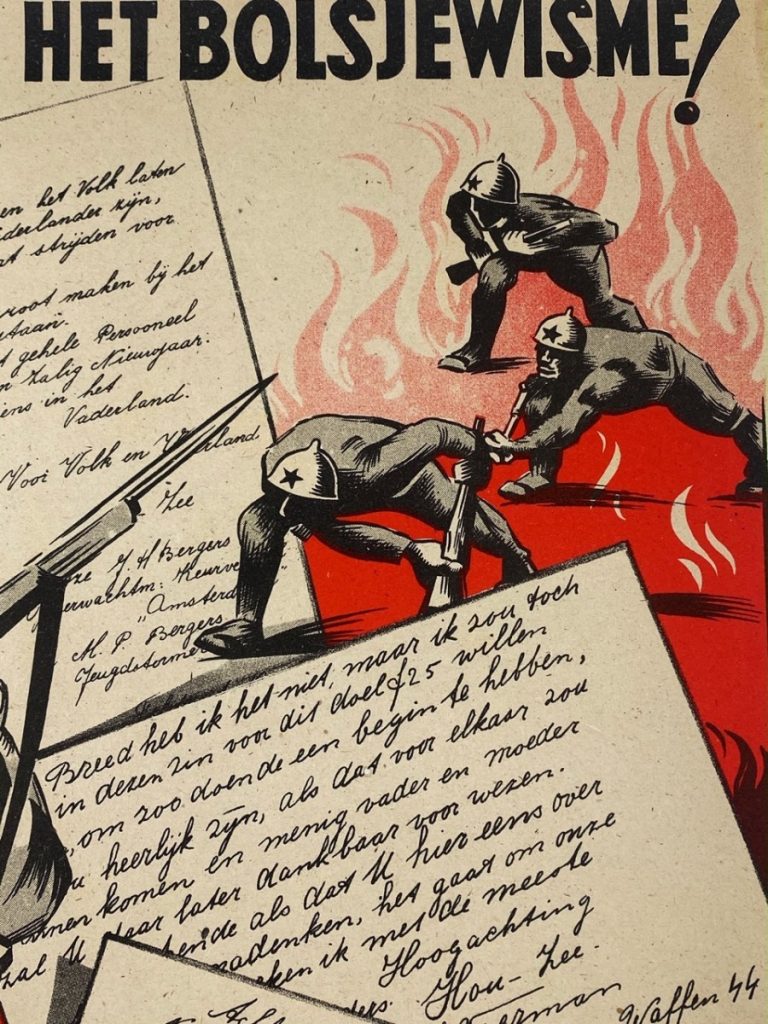 HET BOLSJEWISME!
en het Volk laten
derlander zijn,
at strijden voor
root maken bij het
staan.
t gehele Persooneel
n Zalig Nieuwjaar.
iens in het
Vaderland.
Voor Volk en Vaderland
Zee
J. H Bergers
erwachtm: Keurve
"Amsterda
M. P. Bergers
Jeugdstormer
Breed heb ik het niet, maar ik zou toch
in dezen zin voor dit doel f 25 willen
, om zoo doende een begin te hebben,
u heerlijk zijn, als dat voor elkaar zou
nnen komen en menig vader en moeder
zal U daar later dankbaar voor wezen.
hende als dat U hier eens over
nadenken, het gaat om onze
eken ik met de meeste
Hoogachting
ders. Hou-Zee.
erman
Waffen 44